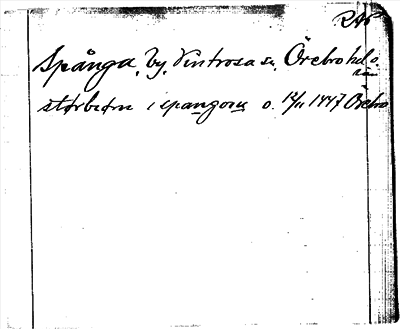 RAp
Spånga, by, Vintrosa sn, Örebro hd o.
län
størbiørn i spangom o. 12/11 1447 Örebro